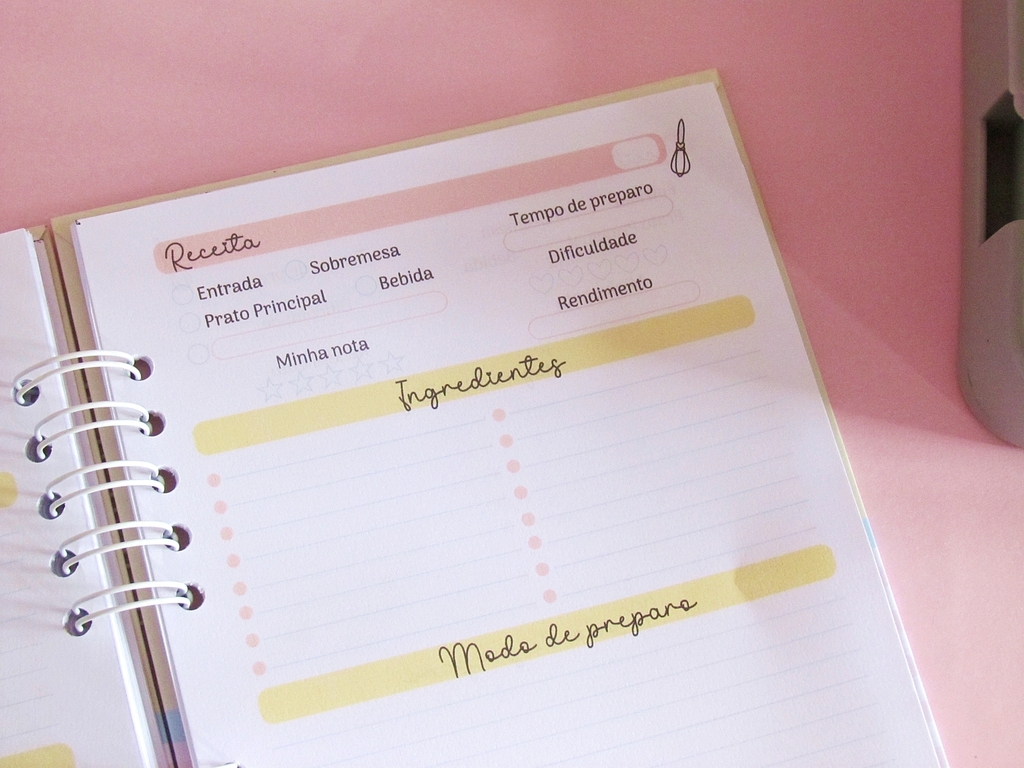 Receita
Entrada
Sobremesa
Prato Principal
Bebida
Minha nota
Tempo de preparo
Dificuldade
Rendimento
Ingredientes
Modo de preparo